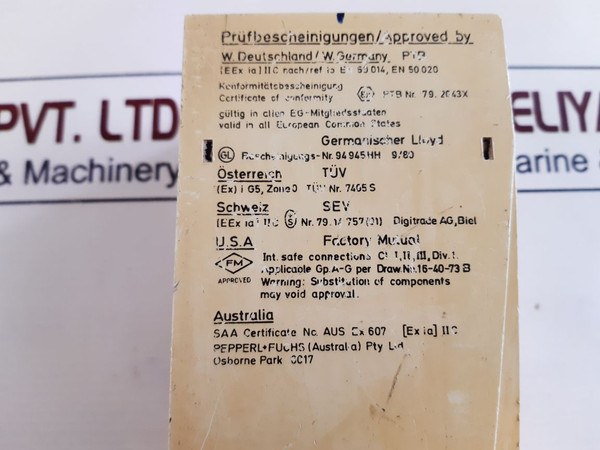 Prüfbescheinigungen/Approved by
W. Deutschland/W. Germany PTB
[EEx ia] IIC nach/ref to EN 50 014, EN 50 020
Konformitätsbescheinigung
Certificate of conformity Ex PTB Nr. 79. 2043X
gültig in allen EG-Mitgliedsstaaten
valid in all European Common States
Germanischer Lloyd
GL Bescheinigungs-Nr. 94 945 HH 9/80
Österreich TÜV
(Ex) i G5, Zone 0 TÜV Nr. 7405 S
Schweiz SEV
[EEx ia] IIC S Nr. 79. 757 (01) Digitrade AG, Biel
U.S.A Factory Mutual
FM Int. safe connections Cl. I, II, III, Div. 1.
Applicable Gp. A-G per Draw. Nr. 16-40-73 B
APPROVED Warning: Substitution of components
may void approval.
Australia
SAA Certificate No. AUS Ex 607 [Ex ia] IIC
PEPPERL+FUCHS (Australia) Pty Ltd
Osborne Park 6017
PVT. LTD
& Machinery
ELIYA
arine &